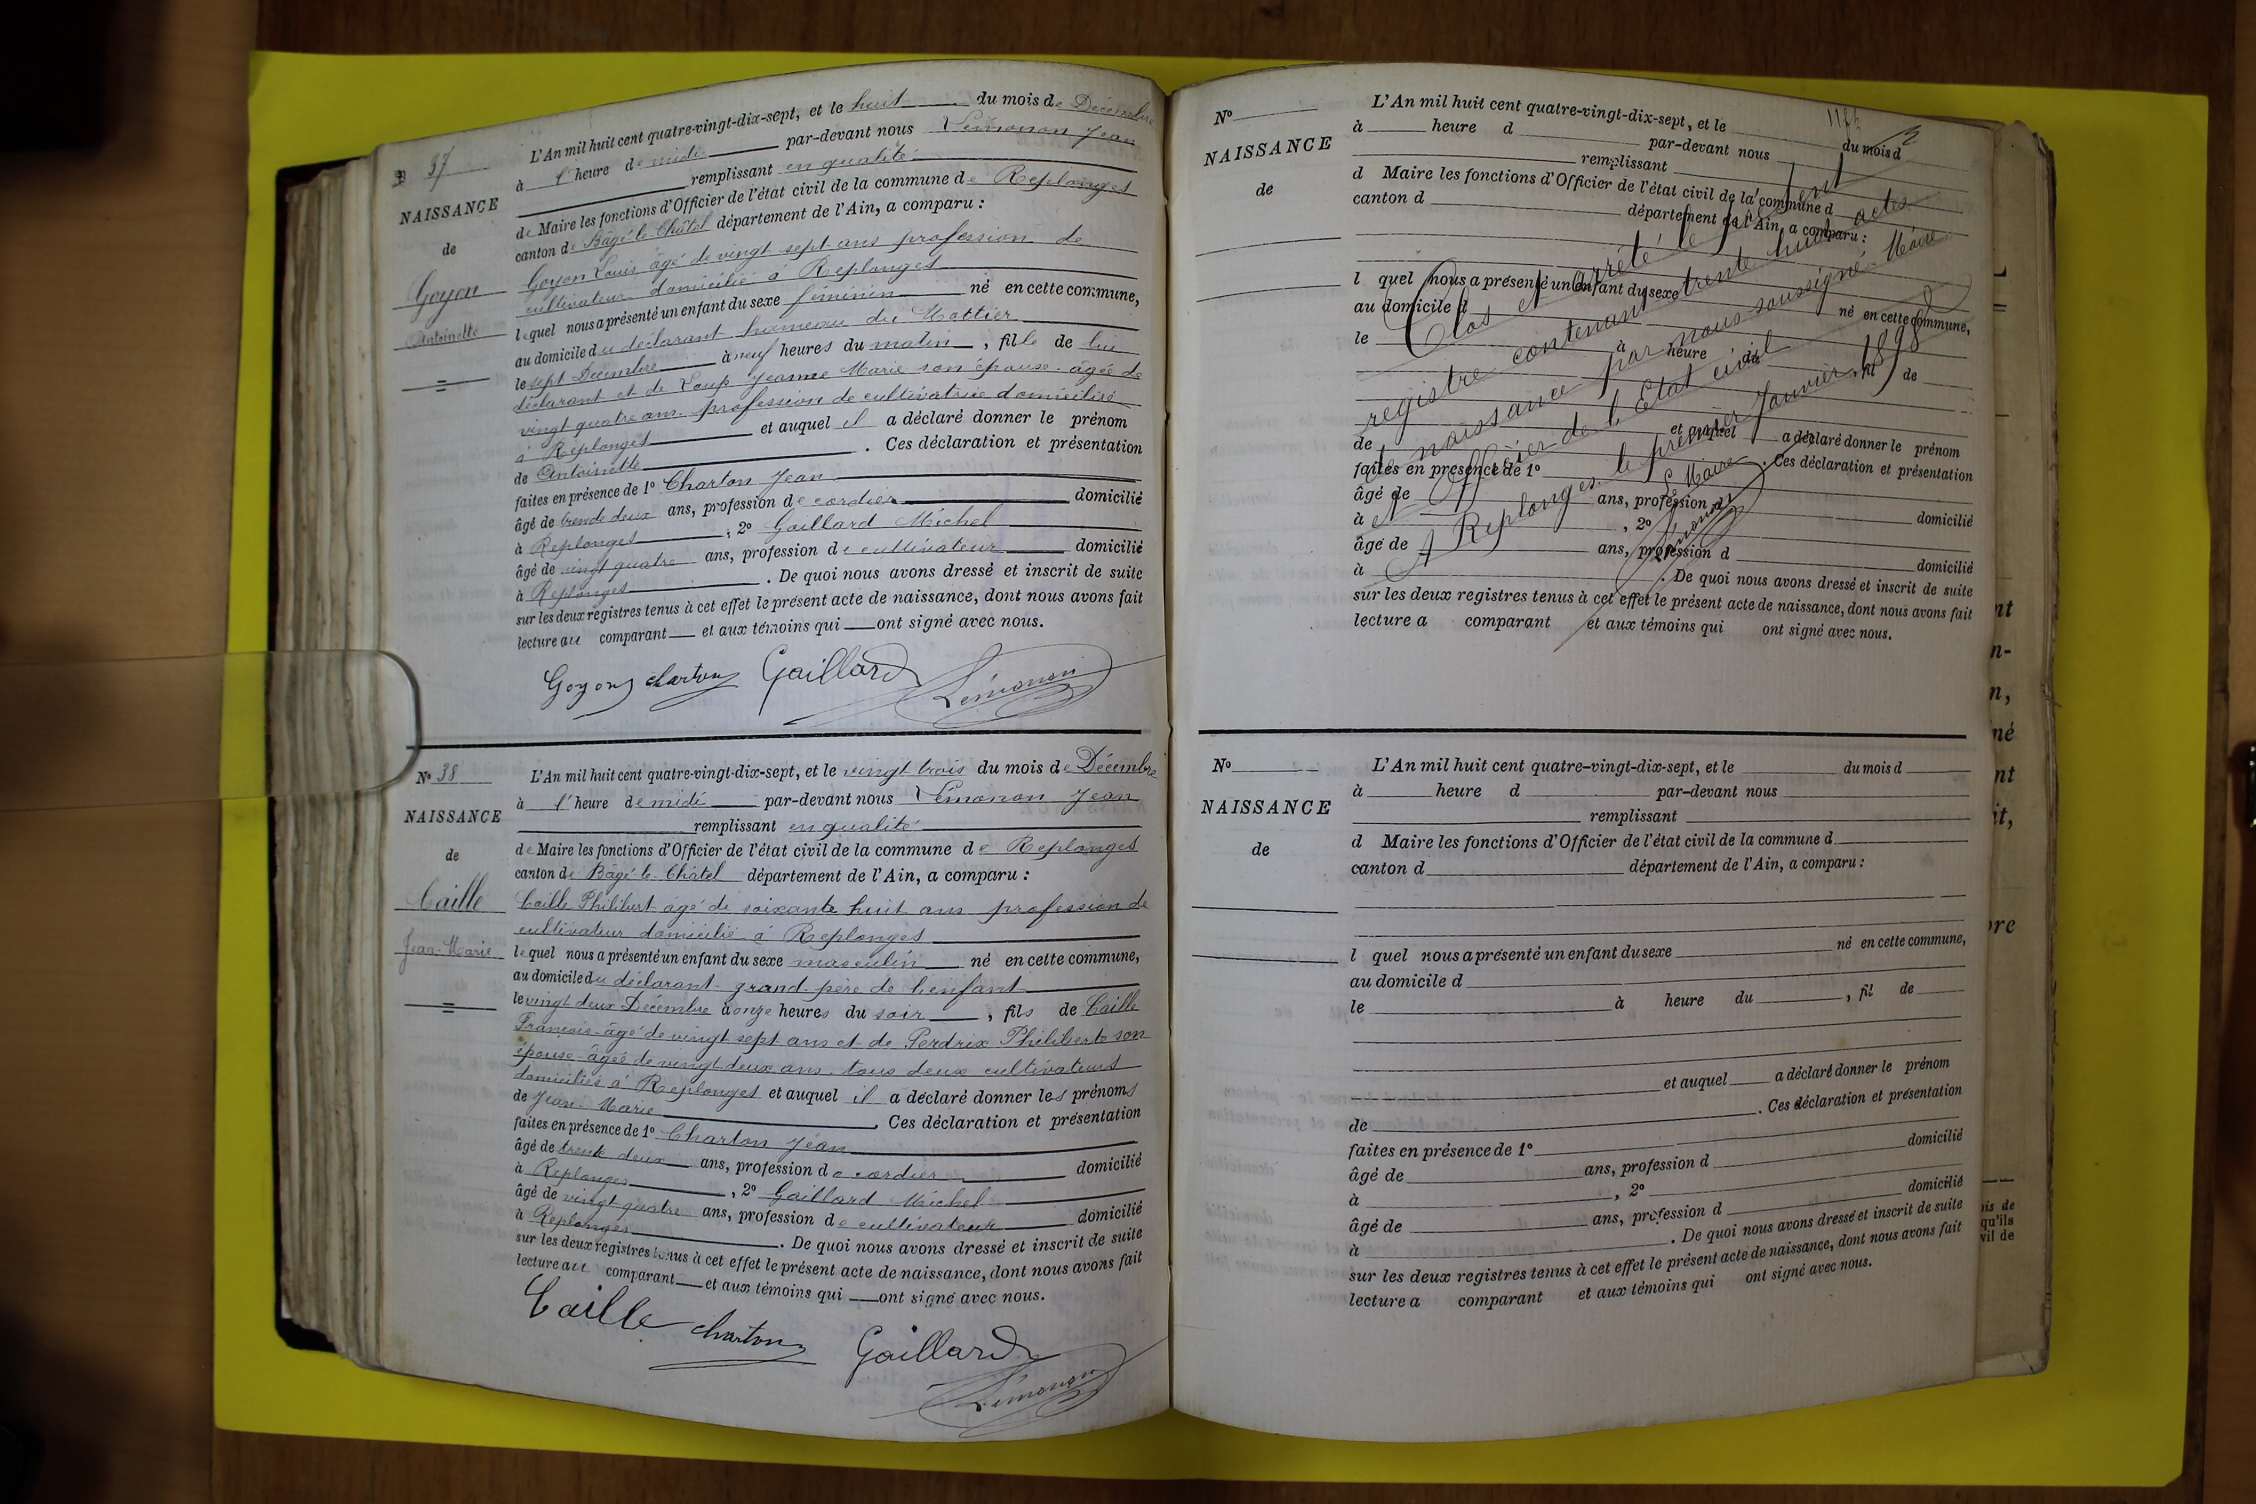 Nº 37
NAISSANCE
de
Goyon
Antoinette
L'An mil huit cent quatre-vingt-dix-sept, et le huit du mois de Décembre
à 1 heure de midi par-devant nous Lémonon Jean
remplissant en qualité
de Maire les fonctions d'Officier de l'état civil de la commune de Replonges
canton de Bâgé-le-Châtel département de l'Ain, a comparu :
Goyon Louis âgé de vingt sept ans profession de
cultivateur domicilié à Replonges
lequel nous a présenté un enfant du sexe féminin né en cette commune,
au domicile du déclarant hameau du Mottier
le sept Décembre à neuf heures du matin, fille de lui
déclarant et de Loup Jeanne Marie son épouse âgée de
vingt quatre ans profession de cultivatrice domiciliée
à Replonges et auquel il a déclaré donner le prénom
de Antoinette. Ces déclaration et présentation
faites en présence de 1º Charton Jean
âgé de trente deux ans, profession de cordier domicilié
à Replonges, 2º Gaillard Michel
âgé de vingt quatre ans, profession de cultivateur domicilié
à Replonges. De quoi nous avons dressé et inscrit de suite
sur les deux registres tenus à cet effet le présent acte de naissance, dont nous avons fait
lecture au comparant et aux témoins qui ont signé avec nous.
Goyon charton Gaillard Lémonon
Nº 38
NAISSANCE
de
Caille
Jean-Marie
L'An mil huit cent quatre-vingt-dix-sept, et le vingt trois du mois de Décembre
à 1 heure de midi par-devant nous Lémonon Jean
remplissant en qualité
de Maire les fonctions d'Officier de l'état civil de la commune de Replonges
canton de Bâgé-le-Châtel département de l'Ain, a comparu :
Caille Philibert âgé de soixante huit ans profession de
cultivateur domicilié à Replonges
lequel nous a présenté un enfant du sexe masculin né en cette commune,
au domicile du déclarant grand-père de l'enfant
le vingt deux Décembre à onze heures du soir, fils de Caille
François âgé de vingt sept ans et de Perdrix Philiberte son
épouse âgée de vingt deux ans tous deux cultivateurs
domiciliés à Replonges et auquel il a déclaré donner les prénoms
de Jean-Marie. Ces déclaration et présentation
faites en présence de 1º Charton Jean
âgé de trente deux ans, profession de cordier domicilié
à Replonges, 2º Gaillard Michel
âgé de vingt quatre ans, profession de cultivateur domicilié
à Replonges. De quoi nous avons dressé et inscrit de suite
sur les deux registres tenus à cet effet le présent acte de naissance, dont nous avons fait
lecture au comparant et aux témoins qui ont signé avec nous.
Caille charton Gaillard
Lémonon
Nº
NAISSANCE
de
L'An mil huit cent quatre-vingt-dix-sept, et le du mois d
à heure d par-devant nous
remplissant
d Maire les fonctions d'Officier de l'état civil de la commune d
canton d département de l'Ain, a comparu :
l quel nous a présenté un enfant du sexe né en cette commune,
au domicile d
le à heure du , fil de
et auquel a déclaré donner le prénom
de . Ces déclaration et présentation
faites en présence de 1º
âgé de ans, profession d domicilié
à , 2º
âgé de ans, profession d domicilié
à . De quoi nous avons dressé et inscrit de suite
sur les deux registres tenus à cet effet le présent acte de naissance, dont nous avons fait
lecture a comparant et aux témoins qui ont signé avec nous.
Clos et arrêté le présent
registre contenant trente huit actes
de naissance par nous soussigné Maire
et Officier de l'Etat civil
A Replonges le premier Janvier 1898
Le Maire
Lémonon
Nº
NAISSANCE
de
L'An mil huit cent quatre-vingt-dix-sept, et le du mois d
à heure d par-devant nous
remplissant
d Maire les fonctions d'Officier de l'état civil de la commune d
canton d département de l'Ain, a comparu :
l quel nous a présenté un enfant du sexe né en cette commune,
au domicile d
le à heure du , fil de
et auquel a déclaré donner le prénom
de . Ces déclaration et présentation
faites en présence de 1º
âgé de ans, profession d domicilié
à , 2º
âgé de ans, profession d domicilié
à . De quoi nous avons dressé et inscrit de suite
sur les deux registres tenus à cet effet le présent acte de naissance, dont nous avons fait
lecture a comparant et aux témoins qui ont signé avec nous.